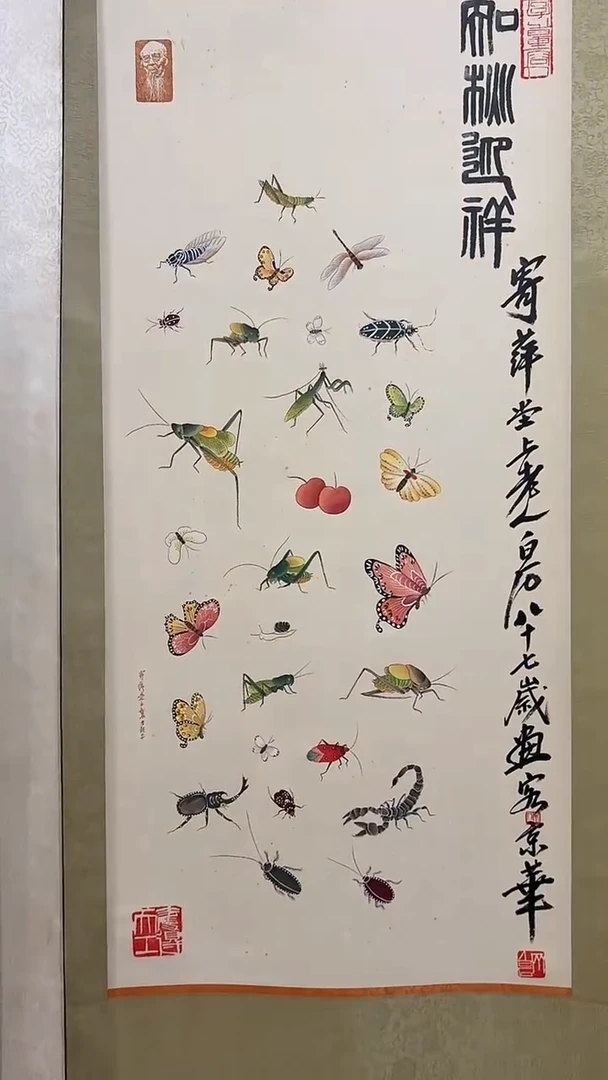 秋迎祥
寄萍堂上老人白石八十七歲畫客京華